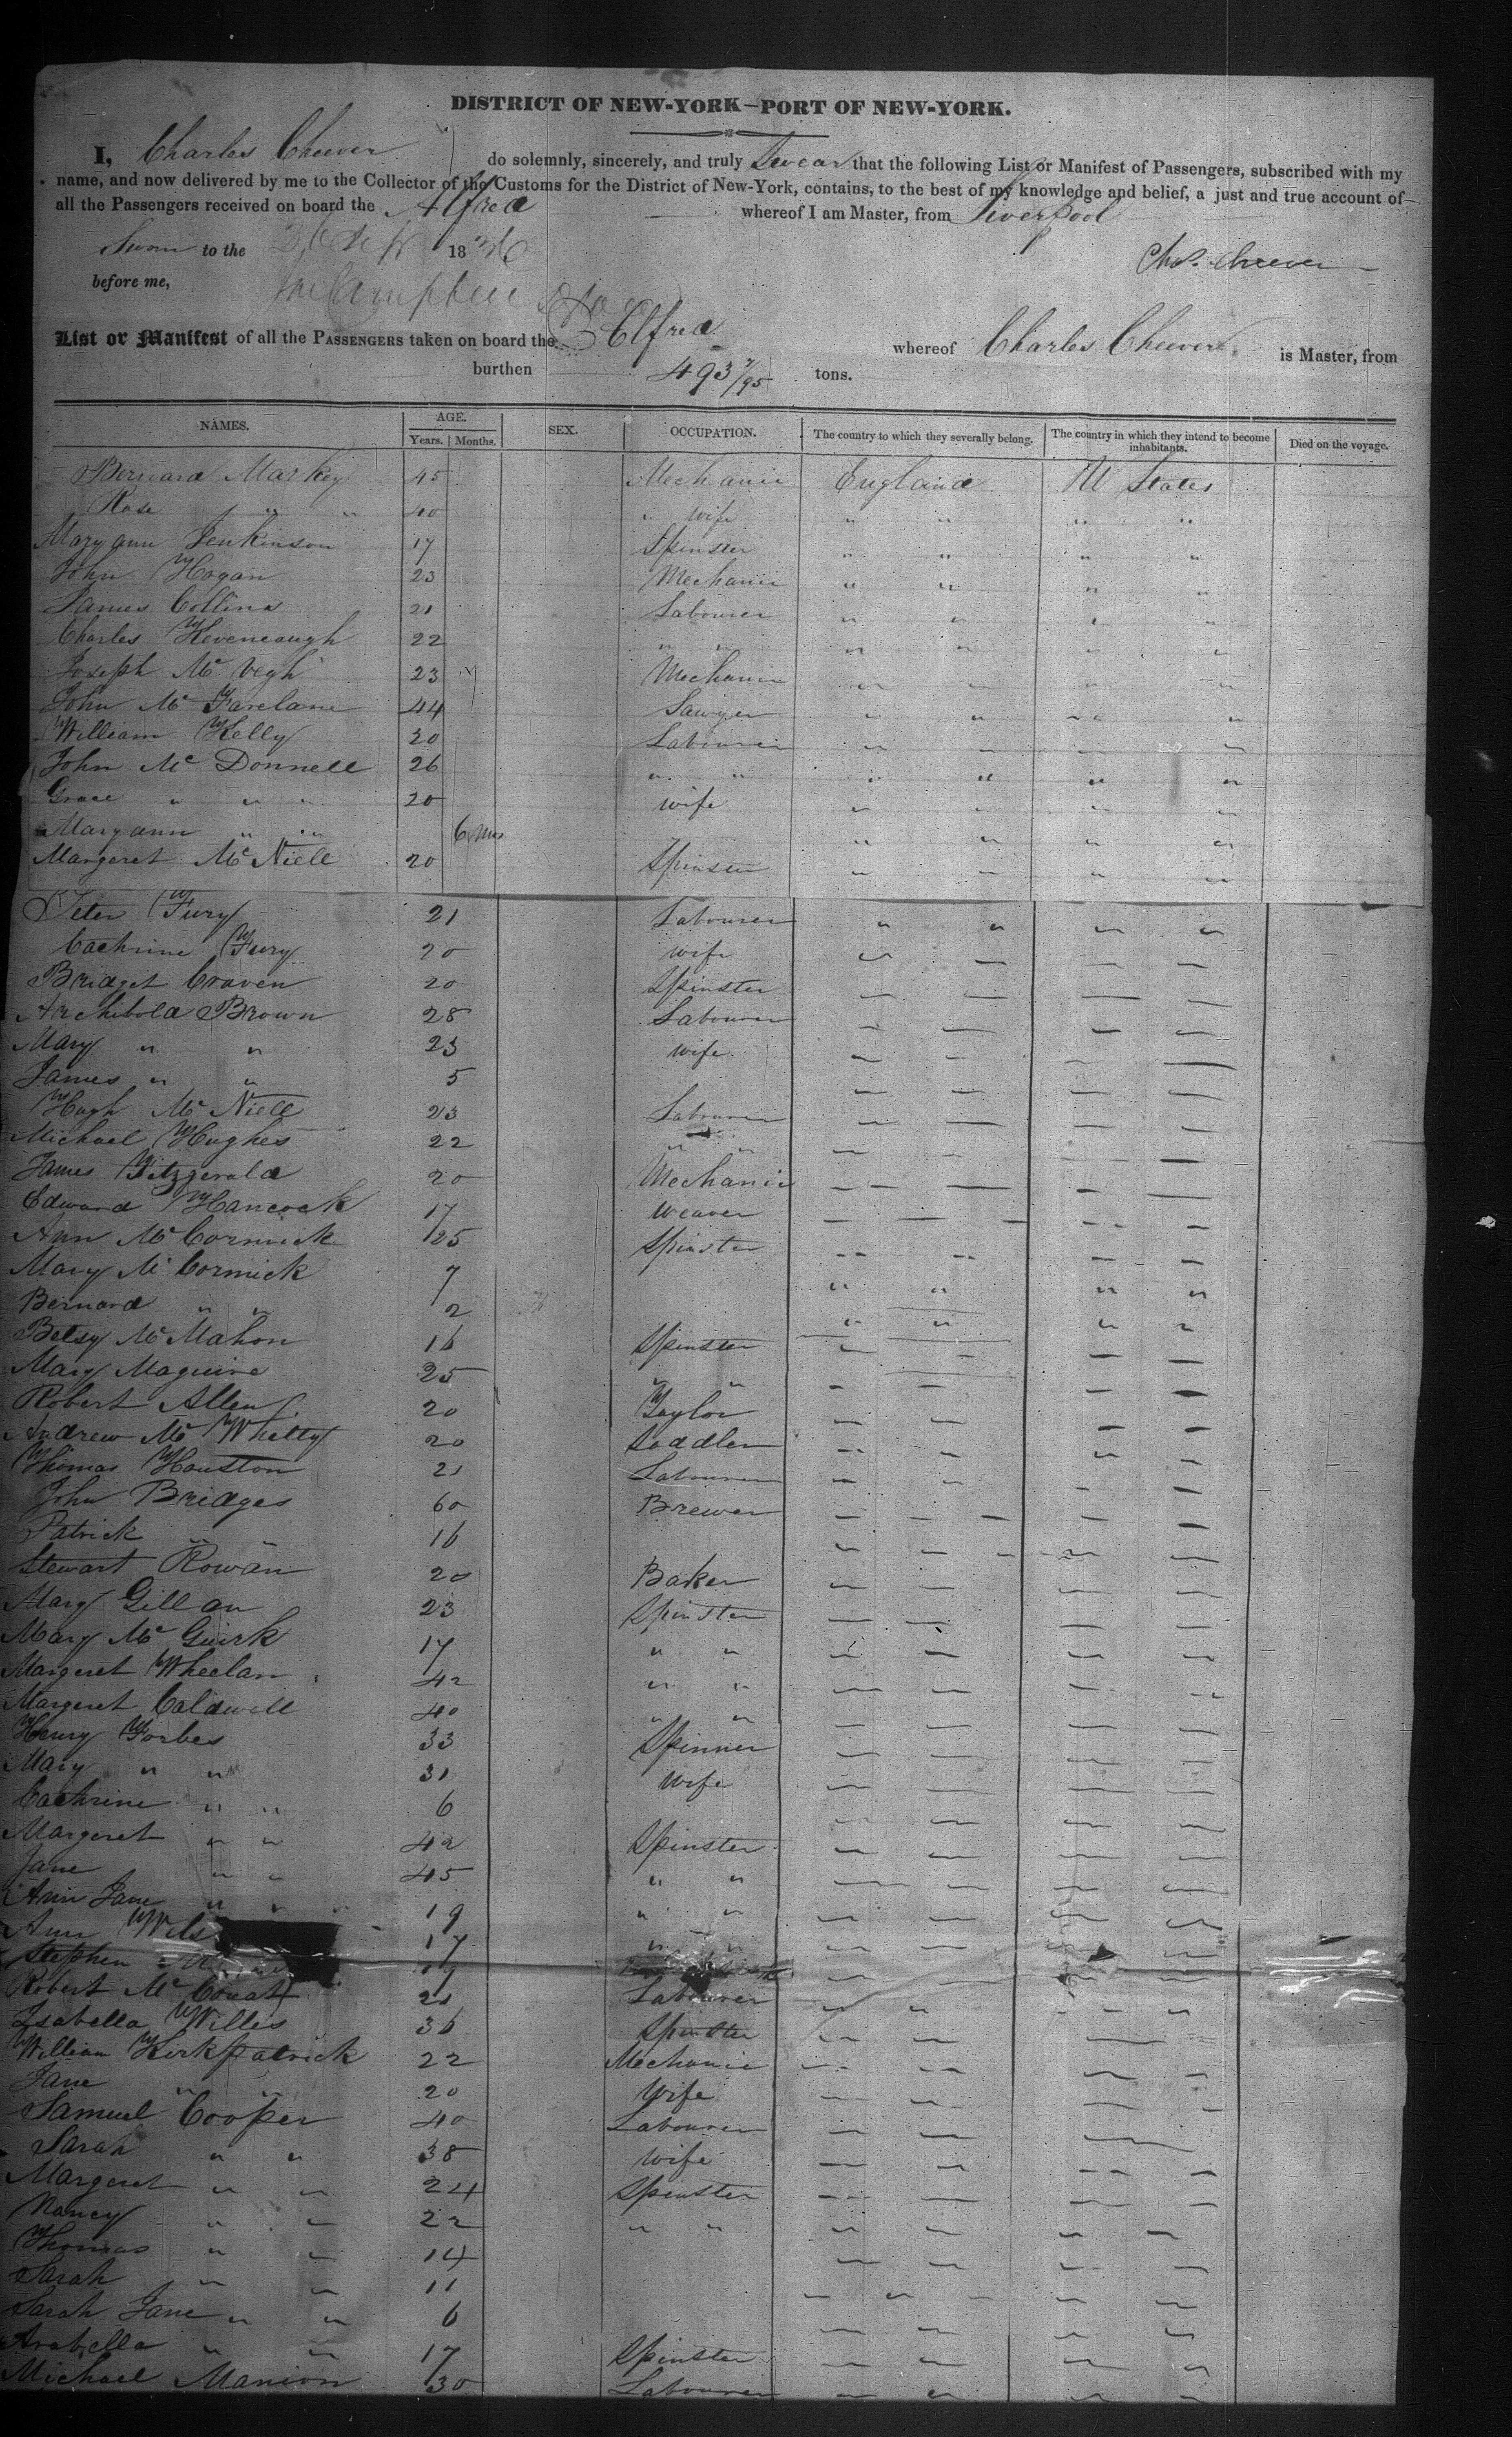 DISTRICT OF NEW-YORK—PORT OF NEW-YORK.
I, Charles Cheever do solemnly, sincerely, and truly Swear that the following List or Manifest of Passengers, subscribed with my
name, and now delivered by me to the Collector of the Customs for the District of New-York, contains, to the best of my knowledge and belief, a just and true account of
all the Passengers received on board the Alfred whereof I am Master, from Liverpool
Sworn to the 1836
Chas. Cheever
before me,
List or Manifest of all the PASSENGERS taken on board the Alfred whereof Charles Cheever is Master, from
burthen 493 7/95 tons.
NAMES. AGE. SEX. OCCUPATION. The country to which they severally belong. The country in which they intend to become inhabitants. Died on the voyage.
Years. Months.
Bernard Markey 45 Mechanic England U States
Rose " " 40 " wife " " " "
Mary ann Jenkinson 17 Spinster " " " "
John Hogan 23 Mechanic " " " "
James Collins 21 Labourer " " " "
Charles Heveneaugh 22 " " " " " "
Joseph Mc Vegh 23 Mechanic " " " "
John Mc Farelane 44 Sawyer " " " "
William Kelly 20 Labourer " " " "
John Mc Donnell 26 " " " " " "
Grace " " " 20 wife " " " "
Mary ann " " 6 mos " " " "
Margeret Mc Niell 20 Spinster " " " "
Peter Fury 21 Labourer " " " "
Cathrine Fury 20 wife " " " "
Bridget Craven 20 Spinster " " " "
Archibold Brown 28 Labourer " " " "
Mary " " 23 wife " " " "
James " " 5 " " " "
Hugh Mc Niell 23 Labourer " " " "
Michael Hughes 22 " " " " " "
James Fitzgerald 20 Mechanic " " " "
Edward Hancock 17 Weaver " " " "
Ann Mc Cormick 25 Spinster " " " "
Mary Mc Cormick 7 " " " "
Bernard " " 2 " " " "
Betsy Mc Mahon 16 Spinster " " " "
Mary Maguire 25 " " " " " "
Robert Allen 20 Taylor " " " "
Andrew Mc Whetty 20 Saddler " " " "
Thomas Houston 21 Labourer " " " "
John Bridges 60 Brewer " " " "
Patrick " " 16 " " " "
Stewart Rowan 20 Baker " " " "
Mary Gillan 23 Spinster " " " "
Mary Mc Guirk 17 " " " " " "
Margeret Wheelan 42 " " " " " "
Margeret Caldwell 40 " " " " " "
Henry Forbes 33 Spinner " " " "
Mary " " 31 Wife " " " "
Cathrine " " 6 " " " "
Margeret " " 42 Spinster " " " "
Jane " " 45 " " " " " "
Ann Jane " " 19 " " " " " "
Ann Wils 17 " " " " " "
Stephen
Robert Mc Couat 21 Labourer " " " "
Isabella Willis 36 Spinster " " " "
William Kirkpatrick 22 Mechanic " " " "
Jane " " 20 Wife " " " "
Samuel Cooper 40 Labourer " " " "
Sarah " " 38 Wife " " " "
Margeret " " 24 Spinster " " " "
Nancy " " 22 " " " " " "
Thomas " " 14 " " " "
Sarah " " 11 " " " "
Sarah Jane " " 6 " " " "
Arabella " " 17 Spinster " " " "
Michael Manion 30 Labourer " " " "